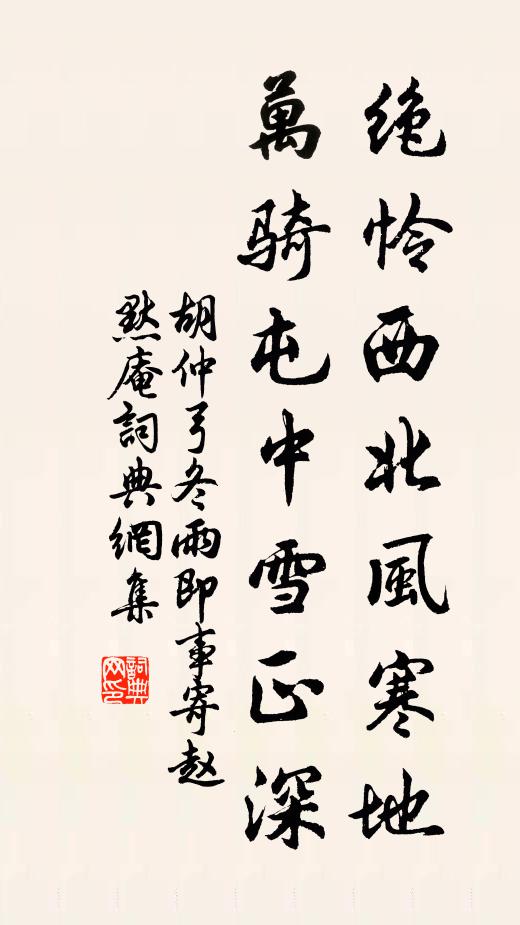 绝怜西北风寒地
萬骑屯中雪正深
胡仲弓冬雨即事寄赵
默庵詞典網集
詞典
网印